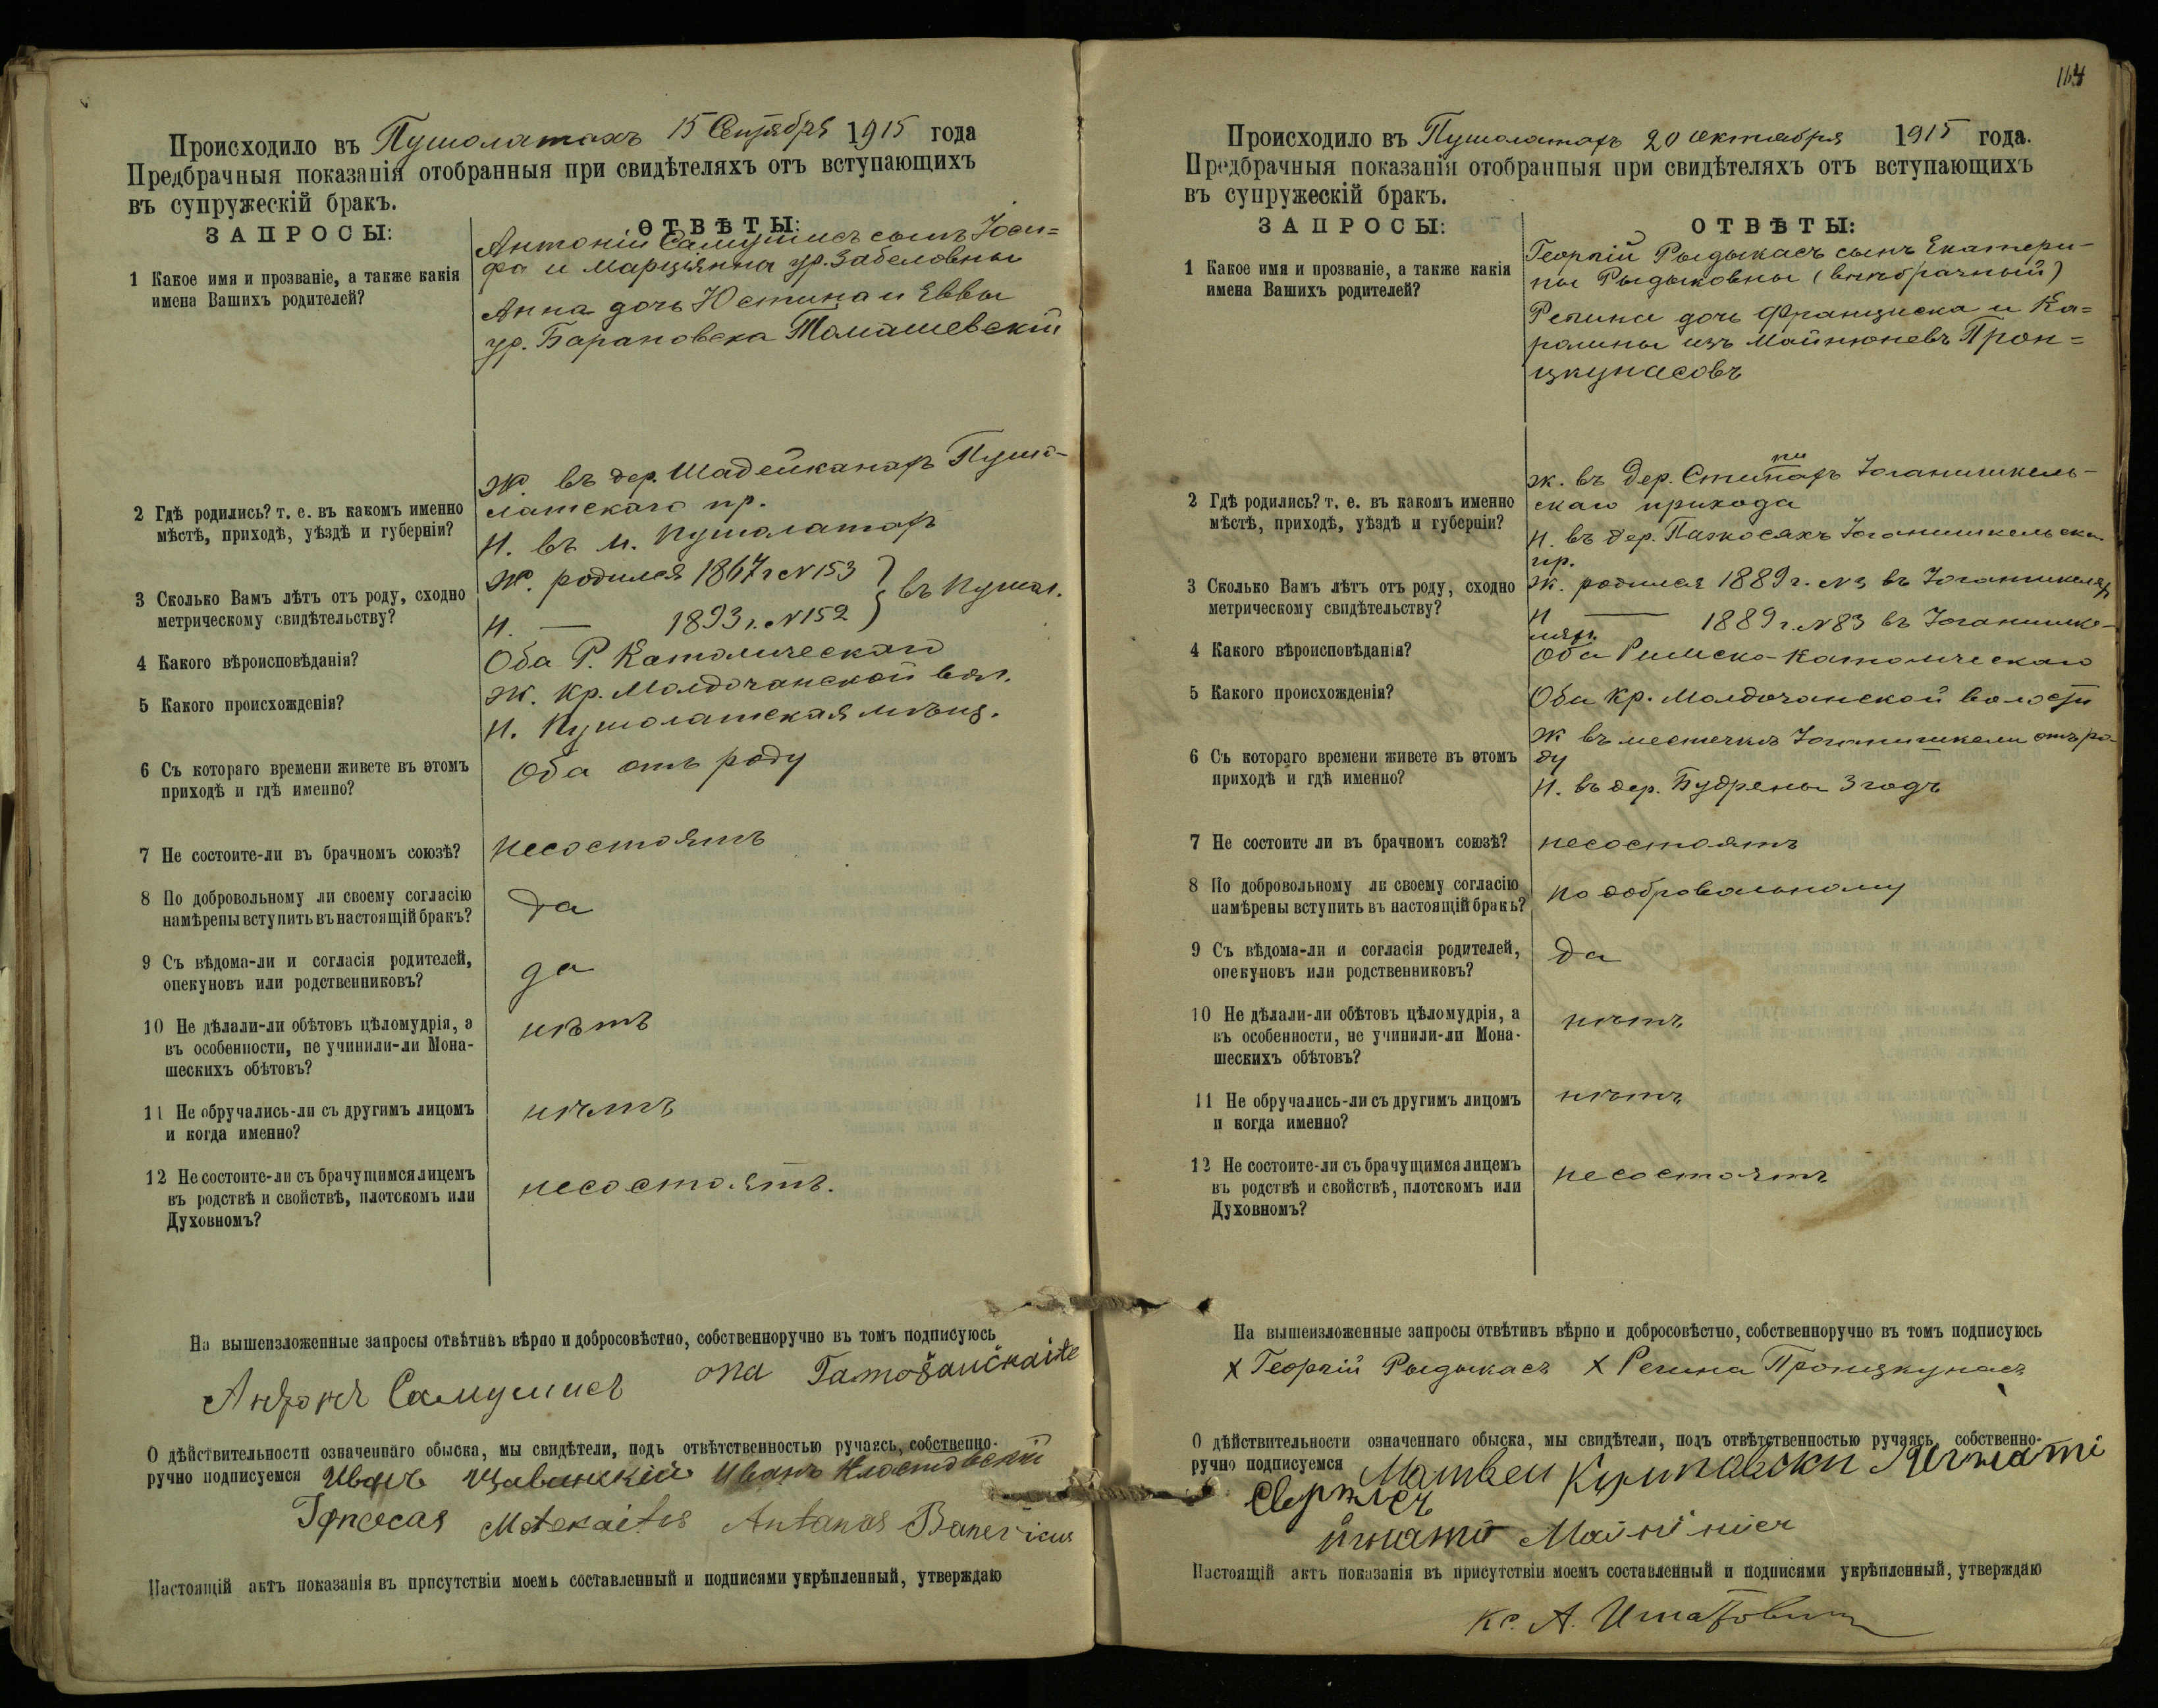 Происходило въ Пушолатахъ 15 Сентября 1915 года
Предбрачныя показанія отобранныя при свидѣтеляхъ отъ вступающихъ
въ супружескій бракъ.
ЗАПРОСЫ:
ОТВѢТЫ:
1 Какое имя и прозваніе, а также какія
имена Вашихъ родителей?
Антоній Самушисъ сынъ Іоси=
фа и Марціянна ур. Забеловны
Анна дочь Юстина и Еввы
ур. Барановска Томашевскій
2 Гдѣ родились? т. е. въ какомъ именно
мѣстѣ, приходѣ, уѣздѣ и губерніи?
Ж. въ дер. Шадейканахъ Пушо-
латскаго пр.
Н. въ м. Пушолатахъ
3 Сколько Вамъ лѣтъ отъ роду, сходно
метрическому свидѣтельству?
Ж. родился 1867 г N 153
Н. — 1893 г. N 152 } въ Пушол.
4 Какого вѣроисповѣданія?
Оба Р. Католическаго
5 Какого происхожденія?
Ж. Кр. Молдочанской вол.
Н. Пушолатская мѣщ.
6 Съ котораго времени живете въ этомъ
приходѣ и гдѣ именно?
Оба отъ роду
7 Не состоите-ли въ брачномъ союзѣ?
несостоятъ
8 По добровольному ли своему согласію
намѣрены вступить въ настоящій бракъ?
Да
9 Съ вѣдома-ли и согласія родителей,
опекуновъ или родственниковъ?
да
10 Не дѣлали-ли обѣтовъ цѣломудрія, а
въ особенности, не учинили-ли Мона-
шескихъ обѣтовъ?
нѣтъ
11 Не обручались-ли съ другимъ лицомъ
и когда именно?
нѣтъ
12 Не состоите-ли съ брачущимся лицемъ
въ родствѣ и свойствѣ, плотскомъ или
Духовномъ?
несостоятъ.
На вышеизложенные запросы отвѣтивъ вѣрно и добросовѣстно, собственноручно въ томъ подписуюсь
Самушисъ она
О дѣйствительности означеннаго обыска, мы свидѣтели, подъ отвѣтственностью ручаясь, собственно-
ручно подписуемся Иванъ Иванъ
Antanas
Настоящій актъ показанія въ присутствіи моемъ составленный и подписями укрѣпленный, утверждаю
164
Происходило въ Пушолатахъ 20 октября 1915 года.
Предбрачныя показанія отобранныя при свидѣтеляхъ отъ вступающихъ
въ супружескій бракъ.
ЗАПРОСЫ:
ОТВѢТЫ:
1 Какое имя и прозваніе, а также какія
имена Вашихъ родителей?
Георгій Рыдыкасъ сынъ Екатери-
ны Рыдыковны (внѣбрачный)
Регина дочь Франциска и Ка=
ролины изъ Майнюневъ Прон=
цкунасовъ
2 Гдѣ родились? т. е. въ какомъ именно
мѣстѣ, приходѣ, уѣздѣ и губерніи?
Ж. въ дер. Іоганишкель-
скаго прихода
Н. въ дер. Іоганишкельска
пр.
3 Сколько Вамъ лѣтъ отъ роду, сходно
метрическому свидѣтельству?
Ж. родился 1889 г. N 3 въ Іоганишкеляхъ
Н — 1889 г. N 83 въ Іоганишке-
ляхъ.
4 Какого вѣроисповѣданія?
Оба Римско-Католическаго
5 Какого происхожденія?
Оба Кр. Молдочанской волости
6 Съ котораго времени живете въ этомъ
приходѣ и гдѣ именно?
Ж въ местечкѣ Іоганишкели отъ ро-
ду
Н. въ дер. Будрены 3 годъ
7 Не состоите ли въ брачномъ союзѣ?
несостоятъ
8 По добровольному ли своему согласію
намѣрены вступить въ настоящій бракъ?
по добровольному
9 Съ вѣдома-ли и согласія родителей,
опекуновъ или родственниковъ?
Да
10 Не дѣлали-ли обѣтовъ цѣломудрія, а
въ особенности, не учинили-ли Мона-
шескихъ обѣтовъ?
нѣтъ
11 Не обручались-ли съ другимъ лицомъ
и когда именно?
нѣтъ
12 Не состоите-ли съ брачущимся лицемъ
въ родствѣ и свойствѣ, плотскомъ или
Духовномъ?
несостоятъ
На вышеизложенные запросы отвѣтивъ вѣрно и добросовѣстно, собственноручно въ томъ подписуюсь
х Георгій Рыдыкасъ х Регина Пронцкунасъ
О дѣйствительности означеннаго обыска, мы свидѣтели, подъ отвѣтственностью ручаясь, собственно-
ручно подписуемся Матвей
Настоящій актъ показанія въ присутствіи моемъ составленный и подписями укрѣпленный, утверждаю
Кс. А.